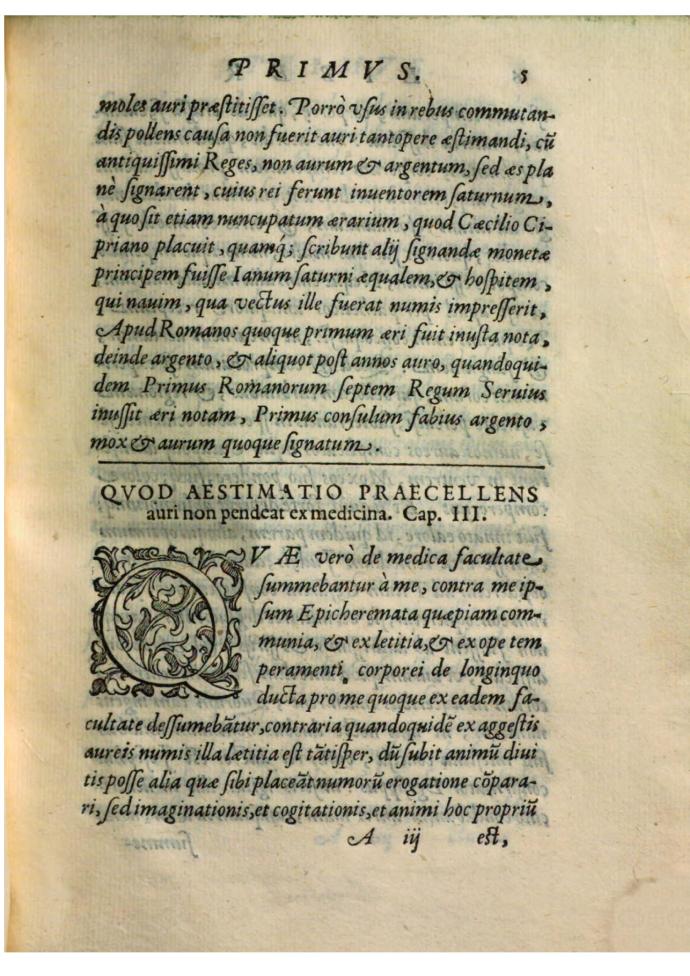 PRIMVS. 5
moles auri præstitisset. Porrò vsus in rebus commutan-
dis pollens causa non fuerit auri tantopere æstimandi, cũ
antiquissimi Reges, non aurum & argentum, sed æs pla
nè signarent, cuius rei ferunt inuentorem saturnum,
à quo sit etiam nuncupatum ærarium, quod Cæcilio Ci-
priano placuit, quamq́; scribunt alij signandæ monetæ
principem fuisse Ianum saturni æqualem, & hospitem,
qui nauim, qua vectus ille fuerat numis impresserit,
Apud Romanos quoque primum æri fuit inusta nota,
deinde argento, & aliquot post annos auro, quandoqui-
dem Primus Romanorum septem Regum Seruius
inussit æri notam, Primus consulum fabius argento,
mox & aurum quoque signatum.
QVOD AESTIMATIO PRAECELLENS
auri non pendeat ex medicina. Cap. III.
QVÆ verò de medica facultate
summebantur à me, contra me ip-
sum Epicheremata quæpiam com-
munia, & ex letitia, & ex ope tem
peramenti, corporei de longinquo
ducta pro me quoque ex eadem fa-
cultate dessumebãtur, contraria quandoquidẽ ex aggestis
aureis numis illa lætitia est tãtisper, dũ subit animũ diui
tis posse alia quæ sibi placeãt numorũ erogatione cõpara-
ri, sed imaginationis, et cogitationis, et animi hoc propriũ
A iij est,